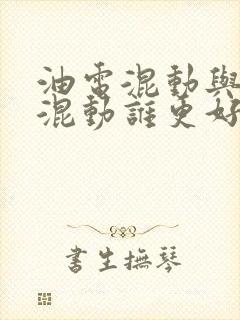 油電混動與
混動誰更好
書生撫琴